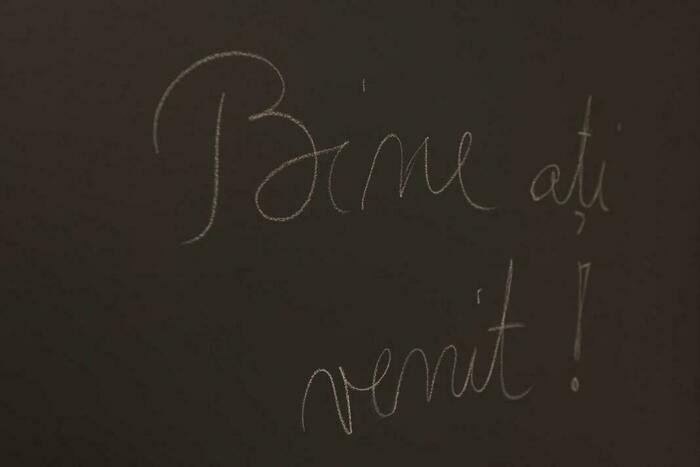 Bine ați
venit!